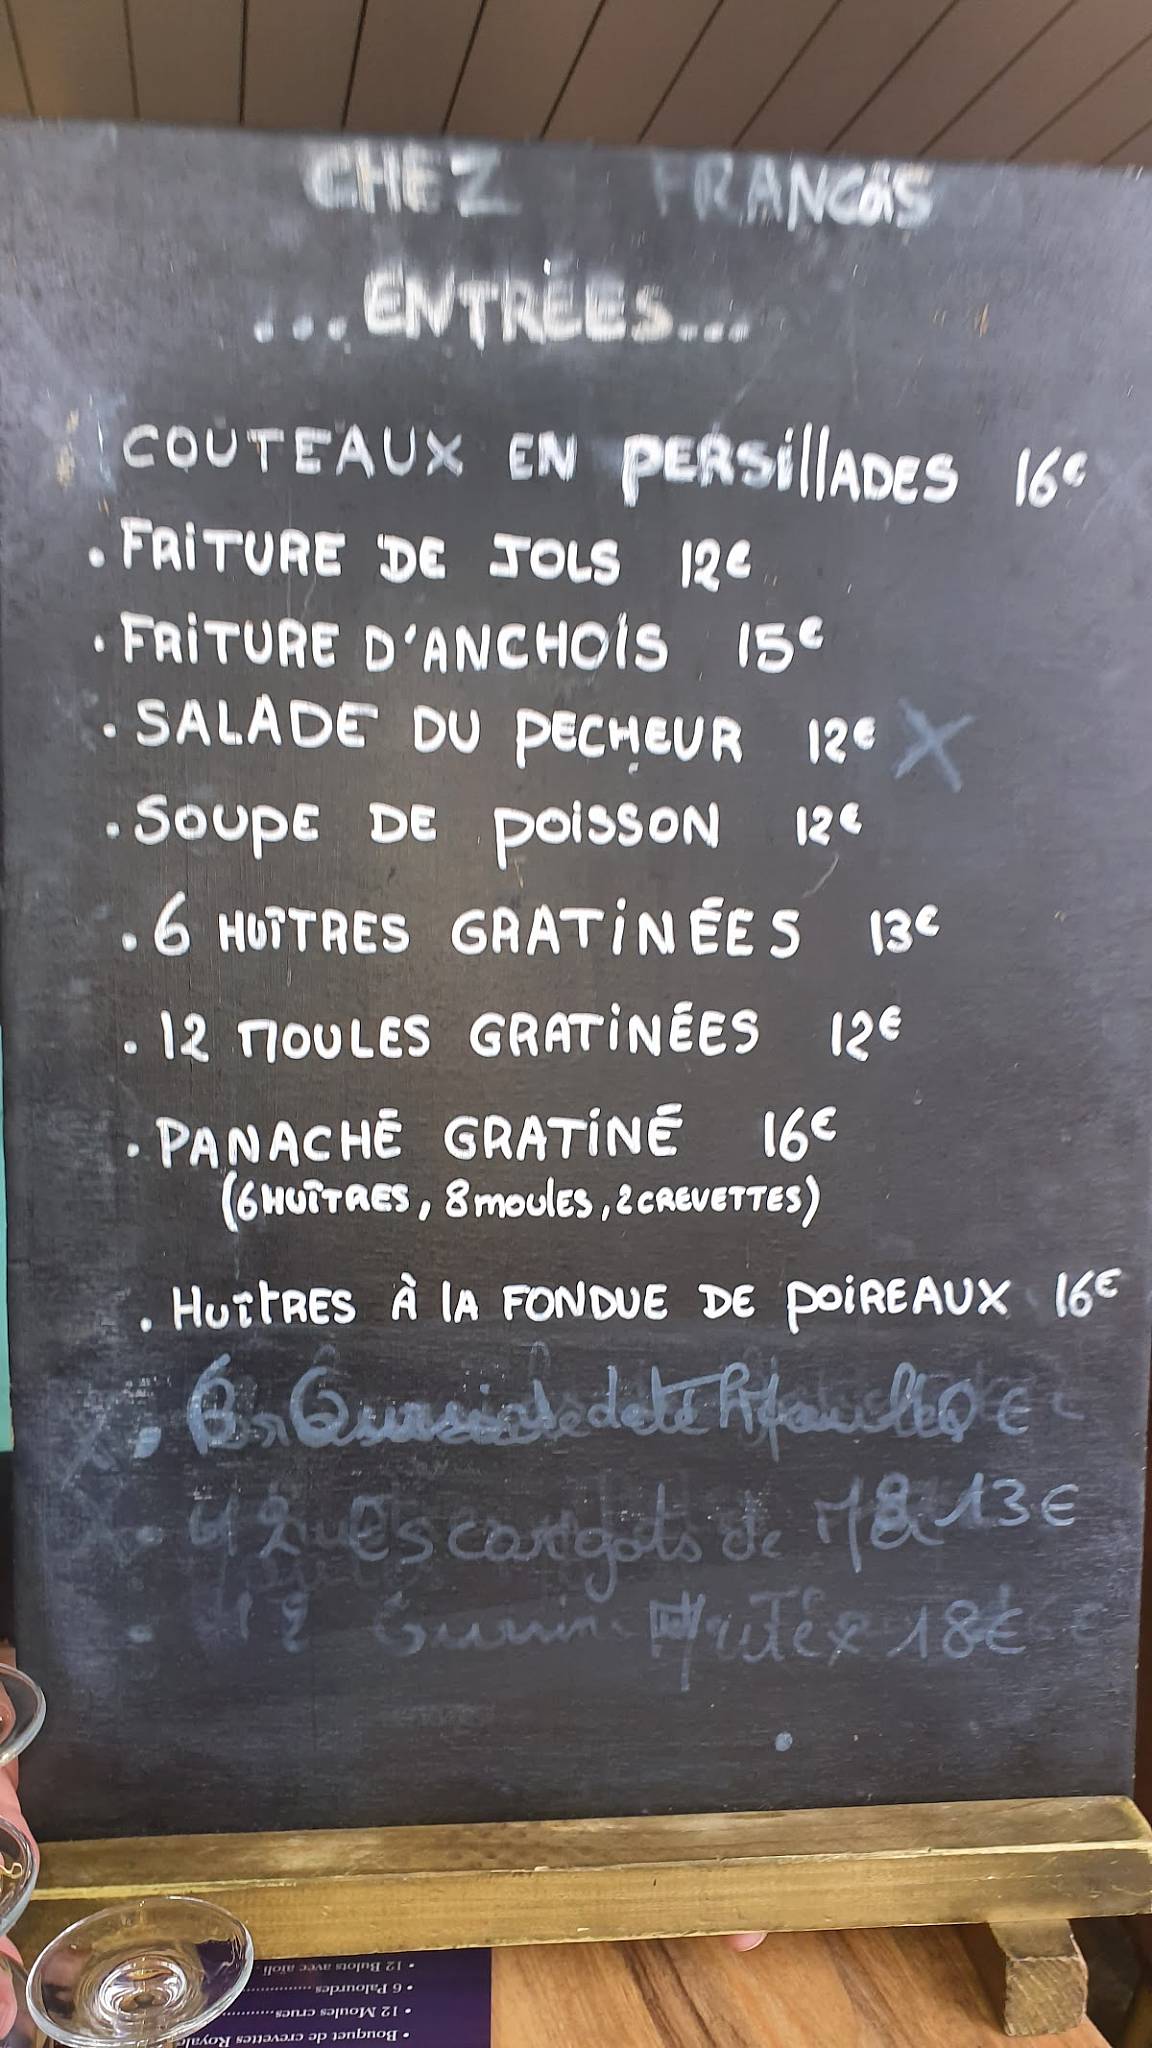 CHEZ FRANCOIS
...ENTRÉES...
COUTEAUX EN PERSillADES 16€
. FRiTURE DE JOLS 12€
. FRiTURE D'ANCHOiS 15€
. SALADE DU PECHEUR 12€ X
. SOUPE DE POISSON 12€
. 6 HUÎTRES GRATiNÉES 13€
. 12 MOULES GRATiNÉES 12€
. PANACHÉ GRATiNÉ 16€
(6 HUÎTRES, 8 moules, 2 CREVETTES)
. HUÎtRES À lA FONDUE DE POiREAUX 16€
Escargots de 13€
12 18€
• 12 Bulots avec aïoli
• 6 Palourdes
• 12 Moules crues
• Bouquet de crevettes Royale